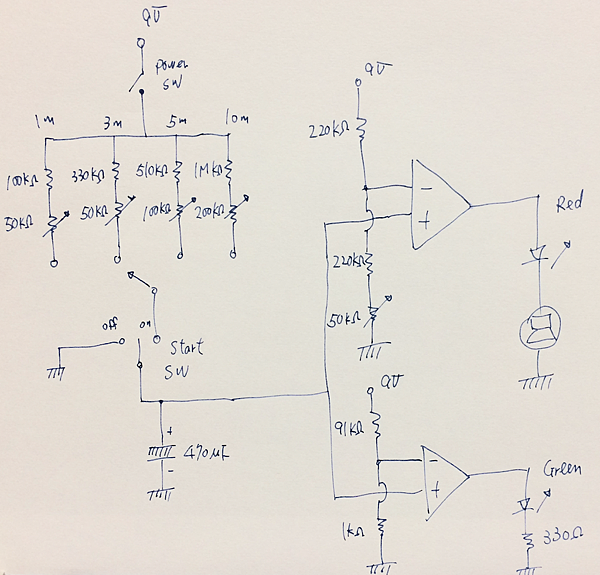 9V
Power
SW
1m 3m 5m 10m
100kΩ 330kΩ 510kΩ 1MkΩ
50kΩ 50kΩ 100kΩ 200kΩ
off on
Start
SW
+
470μF
-
9V
220kΩ
-
+
Red
220kΩ
50kΩ
9V
91kΩ
-
+
Green
1kΩ
330Ω